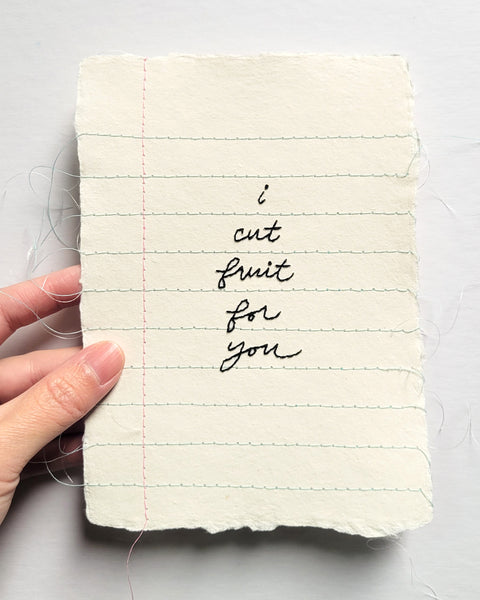 i
cut
fruit
for
you